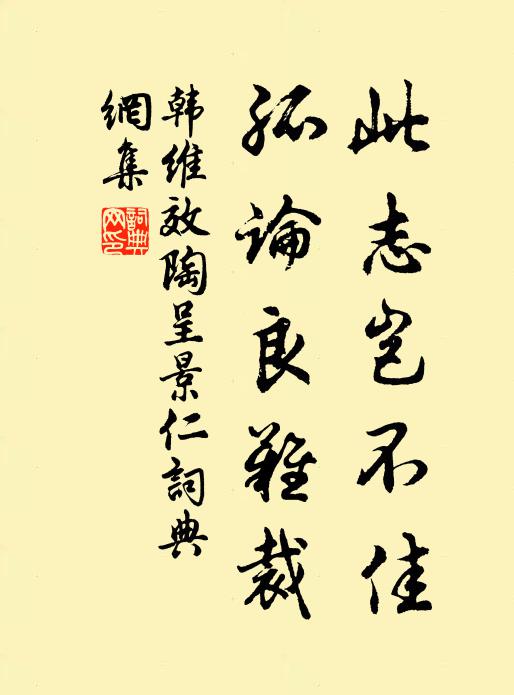 此志岂不佳
孤論良難裁
韩維效陶呈景仁詞典
網集
詞典
网印